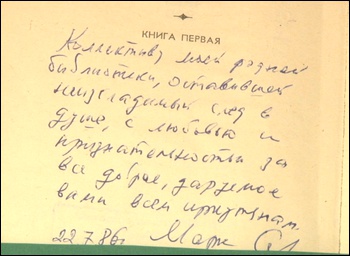 КНИГА ПЕРВАЯ
Коллективу моей родной
библиотеки, оставившей
неизгладимый след в
душе, с любовью и
признательностью за
все доброе, даруемое
вами всем
22.7.86